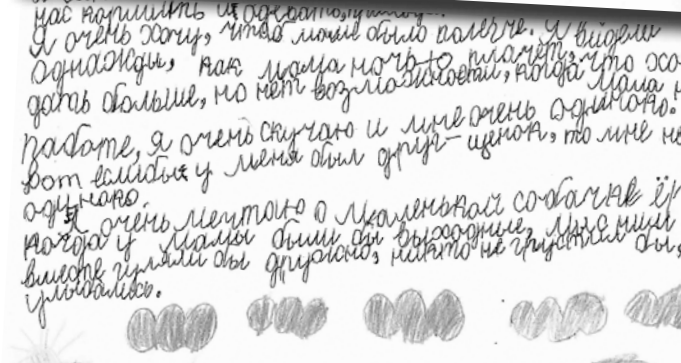 нас кормить и одевать,
Я очень хочу, чтоб маме было полегче. Я видела
однажды, как мама ночью плачет, что хо
дать больше, но нет возможности, когда мама н
работе, я очень скучаю и мне очень одиноко.
вот если бы у меня был друг-щенок, то мне не
одиноко.
Я очень мечтаю о маленькой собачке ёр
когда у мамы были бы выходные, мы с ним
вместе гуляли бы дружно, никто не грустил бы,
улыбались.